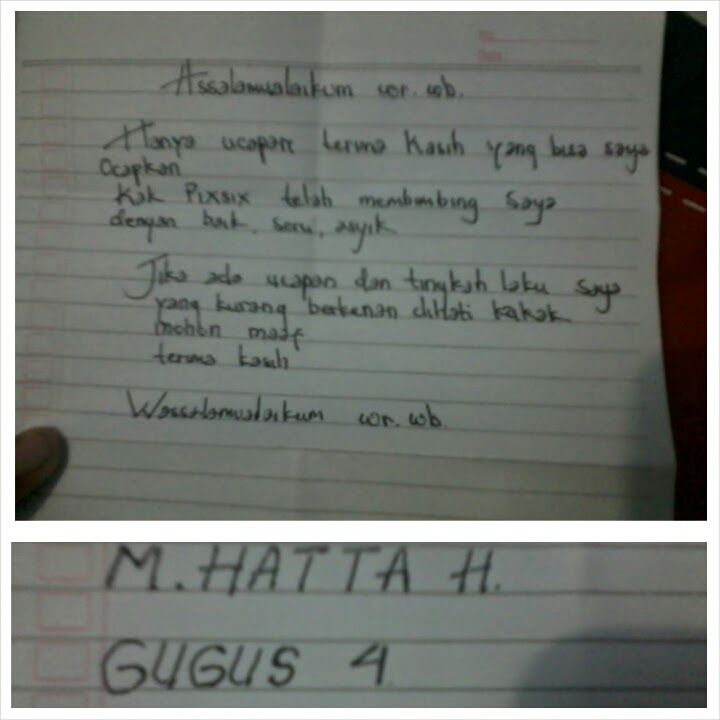 Assalamualaikum wr. wb.
Hanya ucapan terima kasih yang bisa saya
Ucapkan
Kak Pixsix telah membimbing saya
dengan baik, seru, asyik
Jika ada ucapan dan tingkah laku saya
yang kurang berkenan dihati kakak
mohon maaf
terima kasih
Wassalamualaikum wr. wb.
M. HATTA H.
GUGUS 4